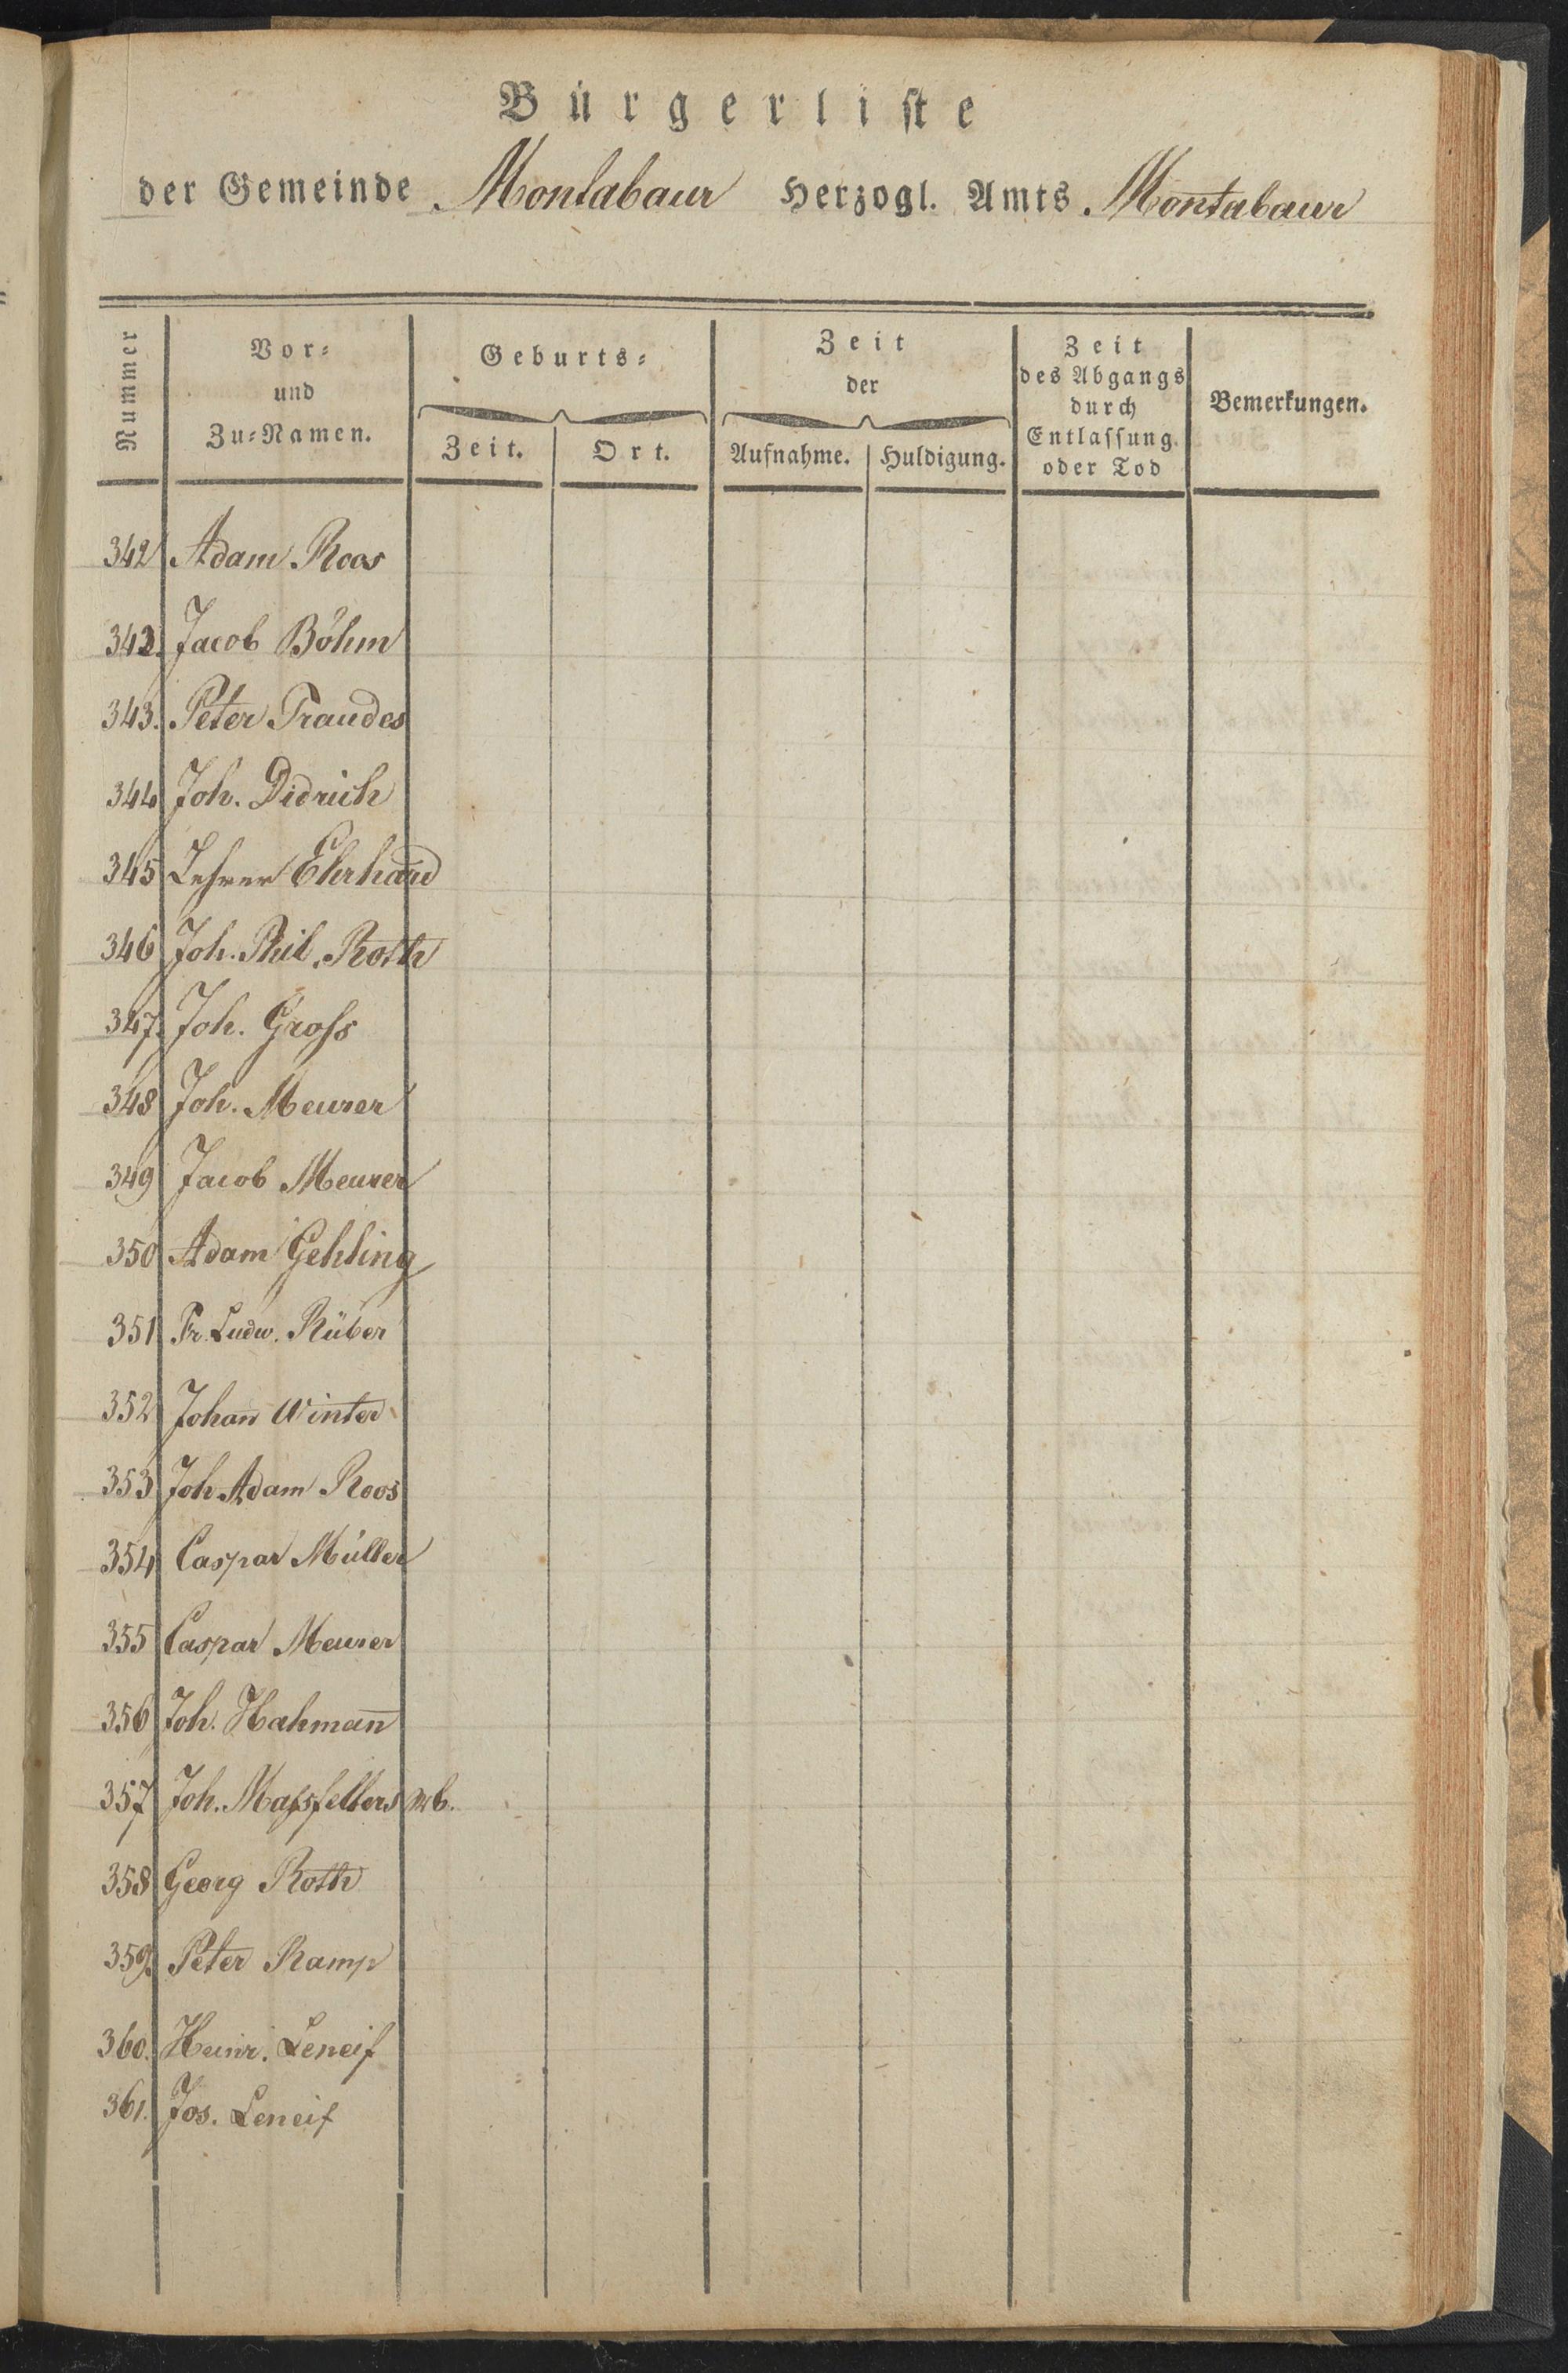 Bürgerliste
der Gemeinde Montabaur Herzogl. Amts Montabaur
Nummer
Vor-
und
Zu-Namen.
Geburts-
Zeit.
Ort.
Zeit
der
Aufnahme.
Huldigung.
Zeit
des Abgangs
durch
Entlassung.
oder Tod
Bemerkungen.
342 Adam Roos
342. Jacob Böhm
343. Peter Traudes
344 Joh. Didrich
345 Lehrer Ehrhard
346 Joh. Phil. Roth
347. Joh. Groß
348 Joh. Meurer
349 Jacob Meurer
350 Adam Gehling
351 Fr. Ludw. Rüber
352 Johan̄ Winter
353 Joh Adam Roos
354 Caspar Müller
355 Caspar Meurer
356 Joh. Hahman̄
357 Joh. Maßfellers
358 Georg Roth
359. Peter Kamp
360. Heinr. Leneif
361. Jos. Leneif